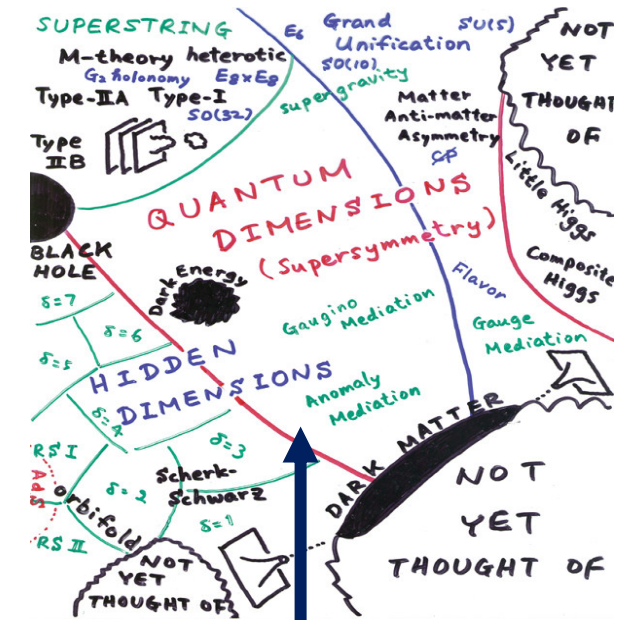 SUPERSTRING
E6
Grand
Unification
SU(5)
SO(10)
M-theory heterotic
G2 holonomy E8xE8
Type-IIA Type-I
SO(32)
Type
IIB
supergravity
Matter
Anti-matter
Asymmetry
CP
NOT
YET
THOUGHT
OF
Little Higgs
Composite
Higgs
QUANTUM
DIMENSIONS
(Supersymmetry)
BLACK
HOLE
Dark Energy
Flavor
Gaugino
Mediation
Gauge
Mediation
Anomaly
Mediation
δ=7
δ=6
δ=5
HIDDEN
DIMENSIONS
δ=4
δ=3
RS I
AdS
orbifold
δ=2
Scherk-
Schwarz
δ=1
RS II
DARK MATTER
NOT
YET
THOUGHT OF
NOT
YET
THOUGHT OF